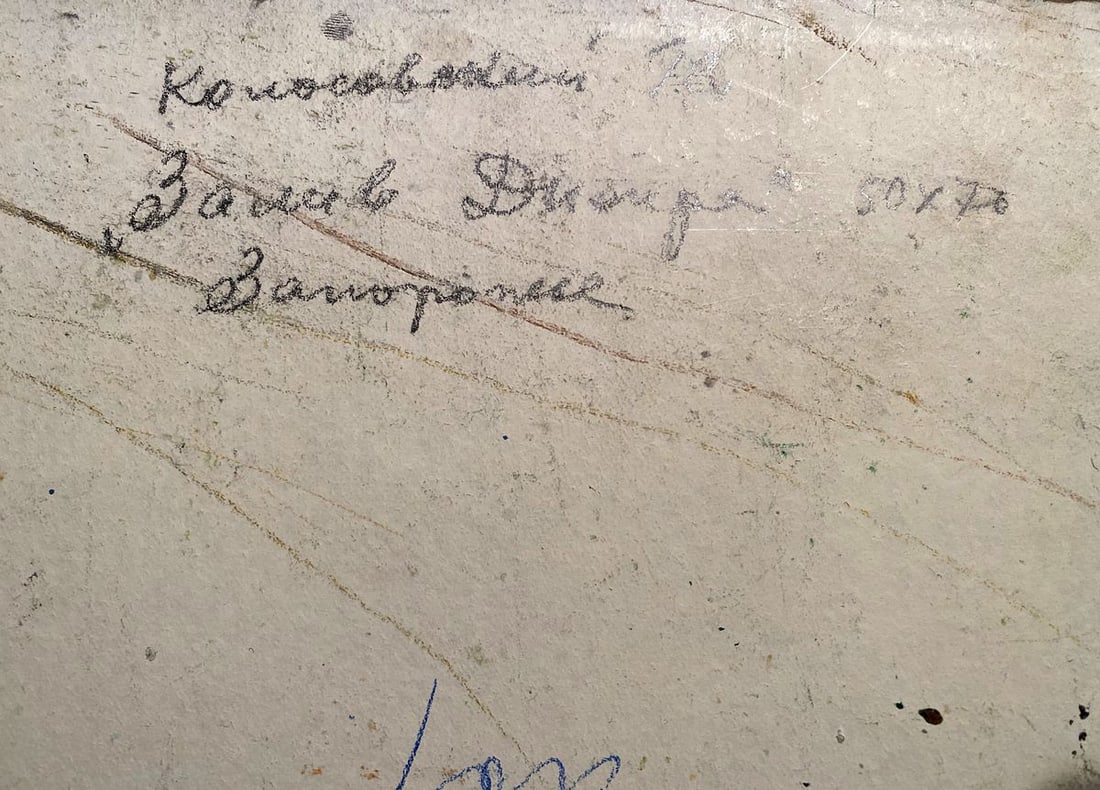 Колосовский
Залив Днепра" 50х70
Запорожье